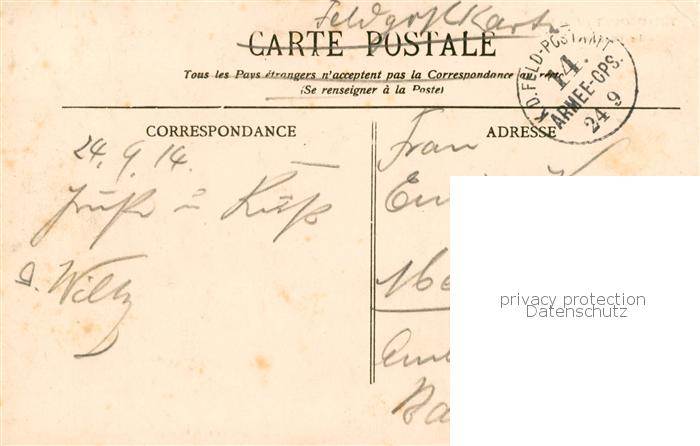 Feldpost Karte
CARTE POSTALE
Tous les Pays étrangers n'acceptent pas la Correspondance au recto
(Se renseigner à la Poste)
K.D.FELD-POSTAMT
14.
ARMEE-CPS.
24 9
CORRESPONDANCE
ADRESSE
24.9.14.
Frau
Gruß u Kuß
D. Willy
privacy protection
Datenschutz